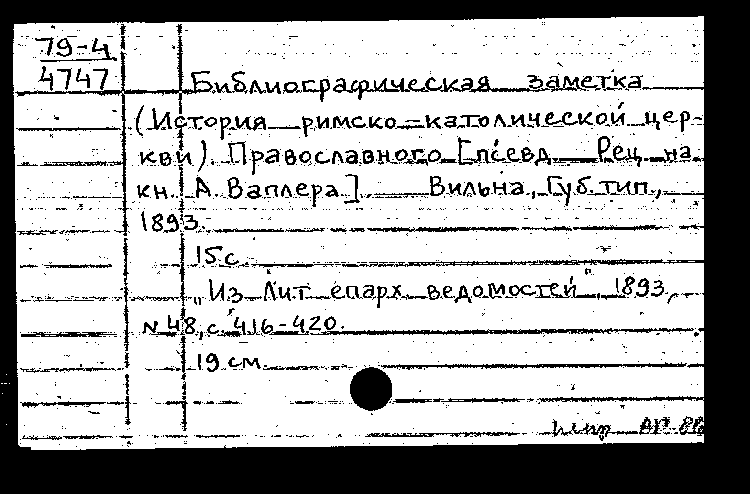 79-4
4747
Библиографическая заметка
(История римско-католической цер-
кви). Православного [псевд. Рец. на
кн. А. Ваплера]. Вильна, Губ. тип.,
1893.
15 с.
„Из Лит. епарх. ведомостей", 1893,
№ 48, с. 416-420.
19 см.